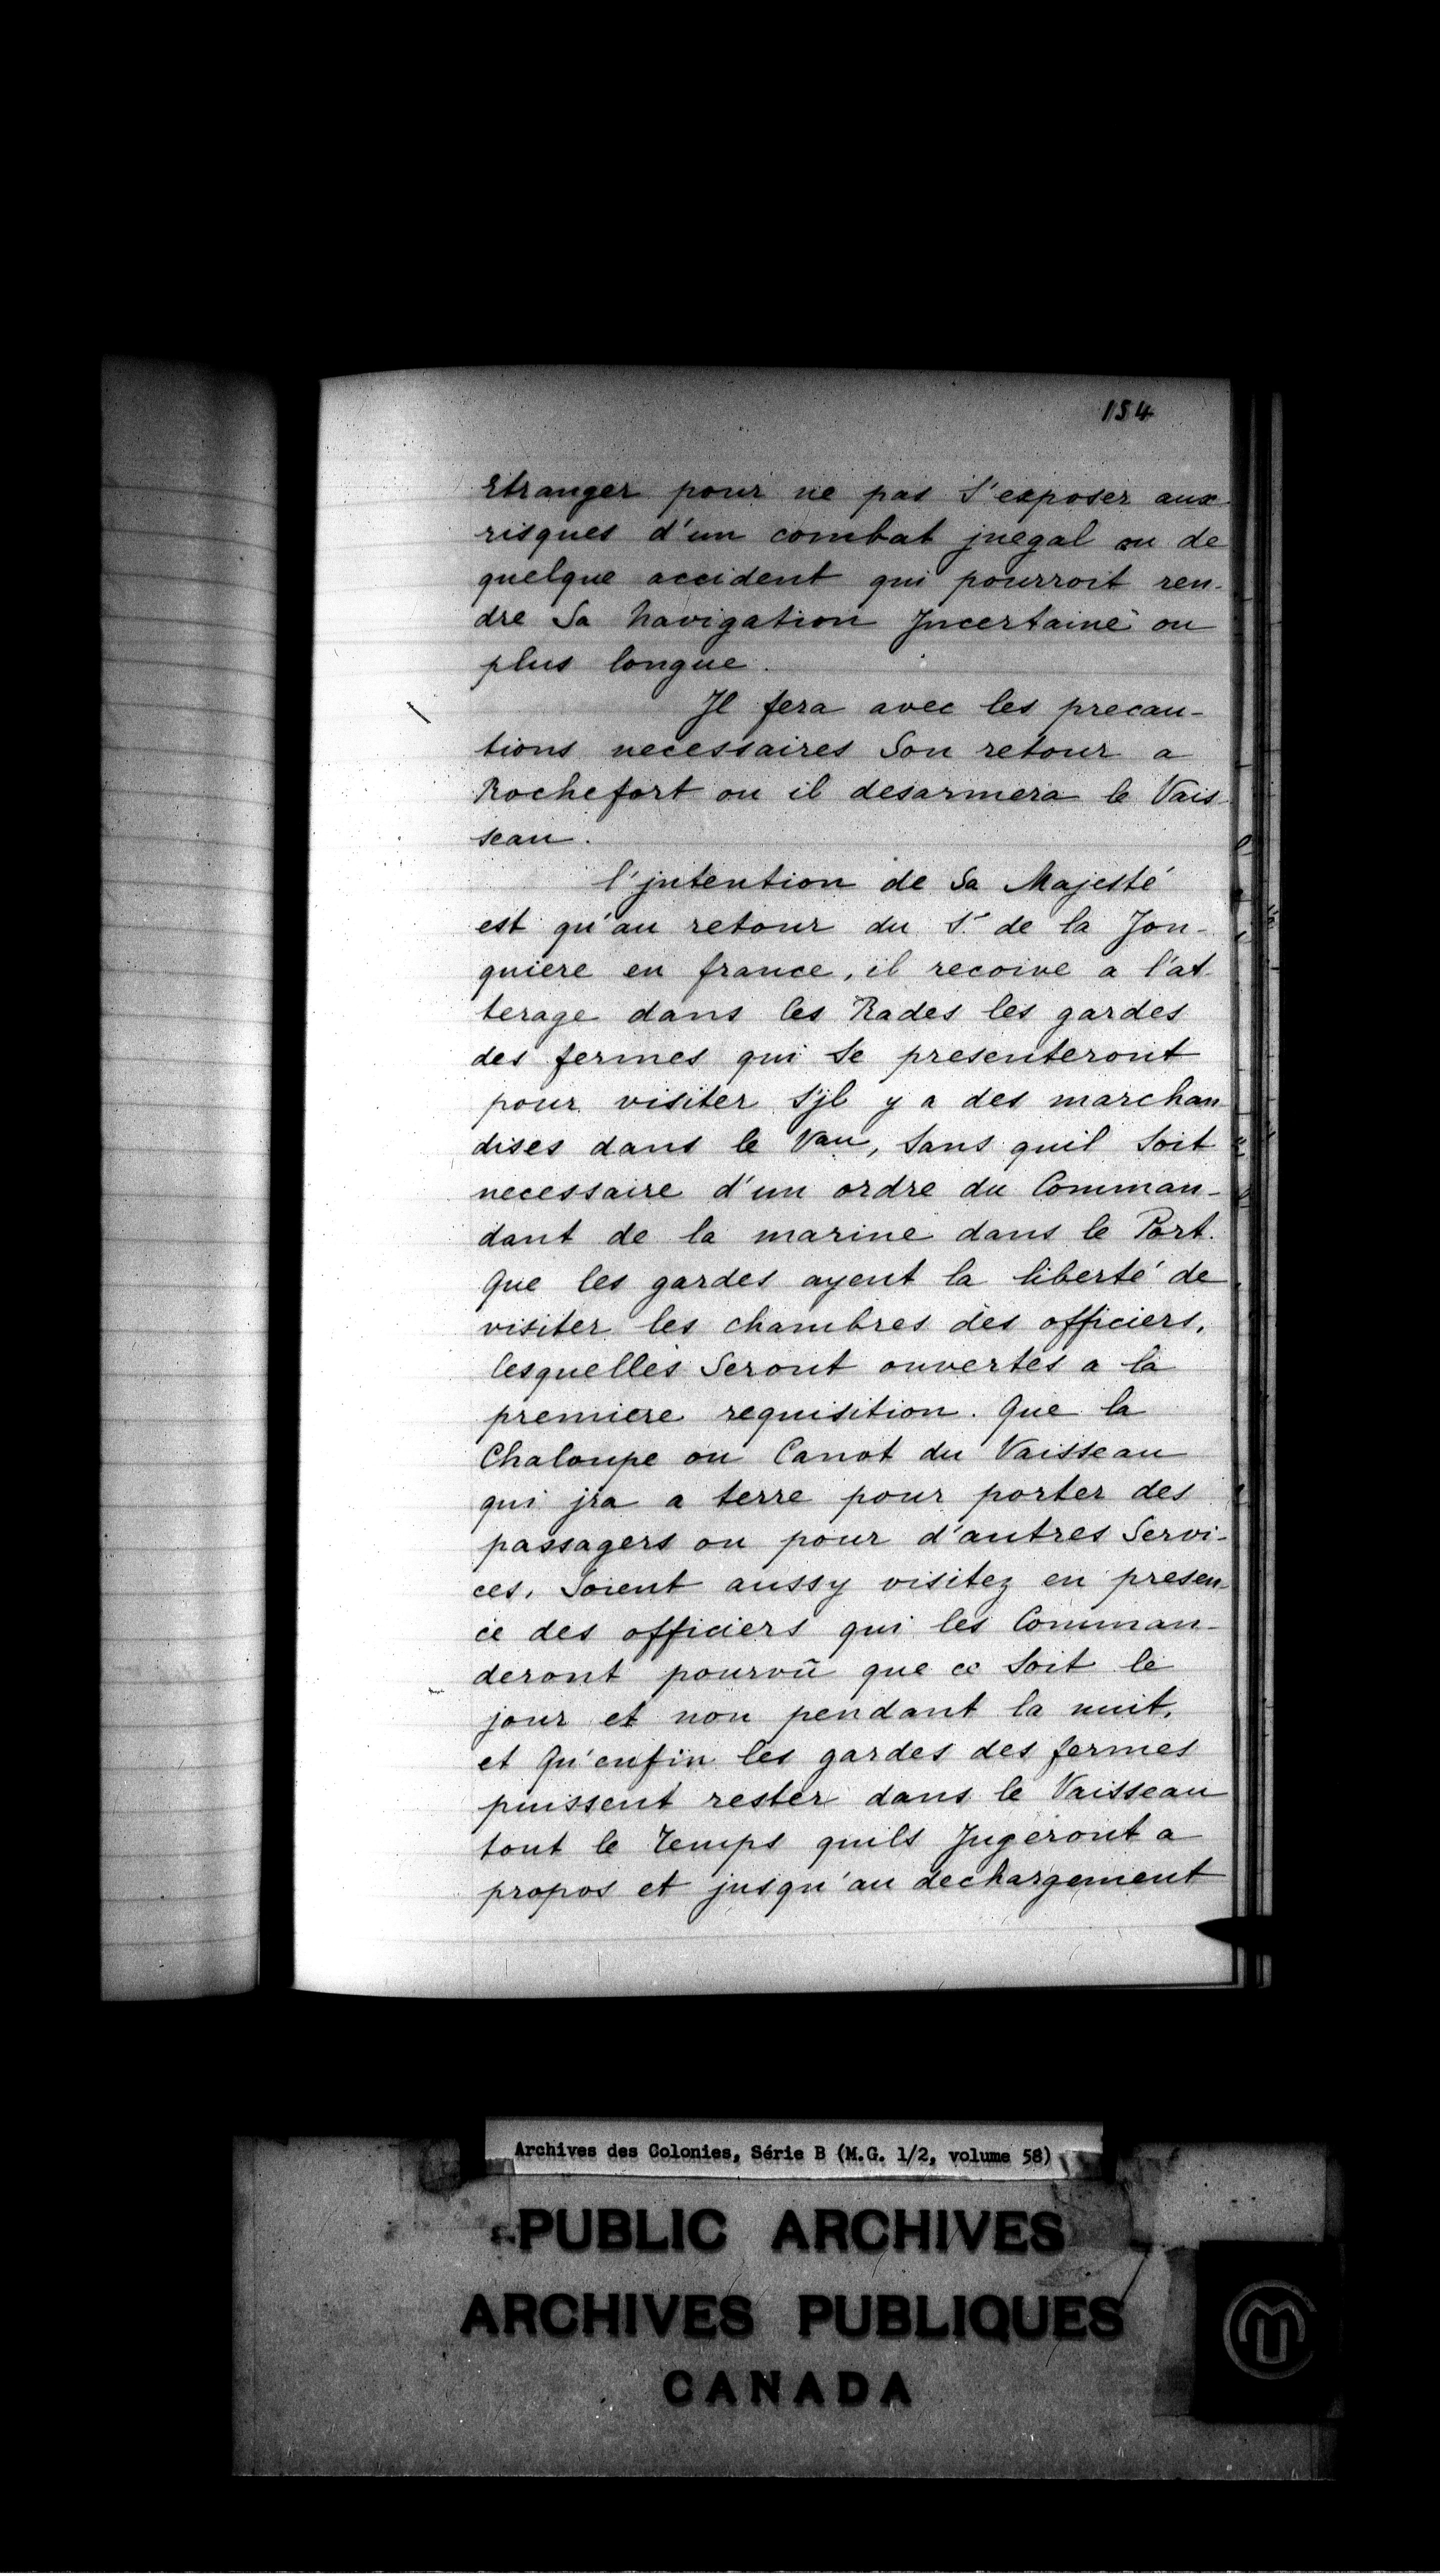 154
Etranger pour ne pas s'exposer aux
risques d'un combat jnegal ou de
quelque accident qui pourroit ren-
dre Sa navigation Jncertaine ou
plus longue.
Jl fera avec les precau-
tions necessaires Son retour a
Rochefort ou il desarmera le Vais-
seau.
l'jntention de Sa Majesté
est qu'au retour du Sr de la Jon-
quiere en france, il recoive a l'at
terage dans les Rades les gardes
des fermes qui Se presenteront
pour visiter S'jl y a des marchan
dises dans le Vau, Sans quil Soit
necessaire d'un ordre du Comman-
dant de la marine dans le Port.
Que les gardes ayent la liberté de
visiter les chambres des officiers,
lesquelles Seront ouvertes a la
premiere requisition. Que la
Chaloupe ou Canot du Vaisseau
qui jra a terre pour porter des
passagers ou pour d'autres Servi-
ces, Soient aussy visitez en presen-
ce des officiers qui les Comman-
deront pourvû que ce Soit le
jour et non pendant la nuit,
et Qu'enfin les gardes des fermes
puissent rester dans le Vaisseau
tout le Temps quils Jugeront a
propos et jusqu'au dechargement
Archives des Colonies, Série B (M.G. 1/2, volume 58)
PUBLIC ARCHIVES
ARCHIVES PUBLIQUES
CANADA